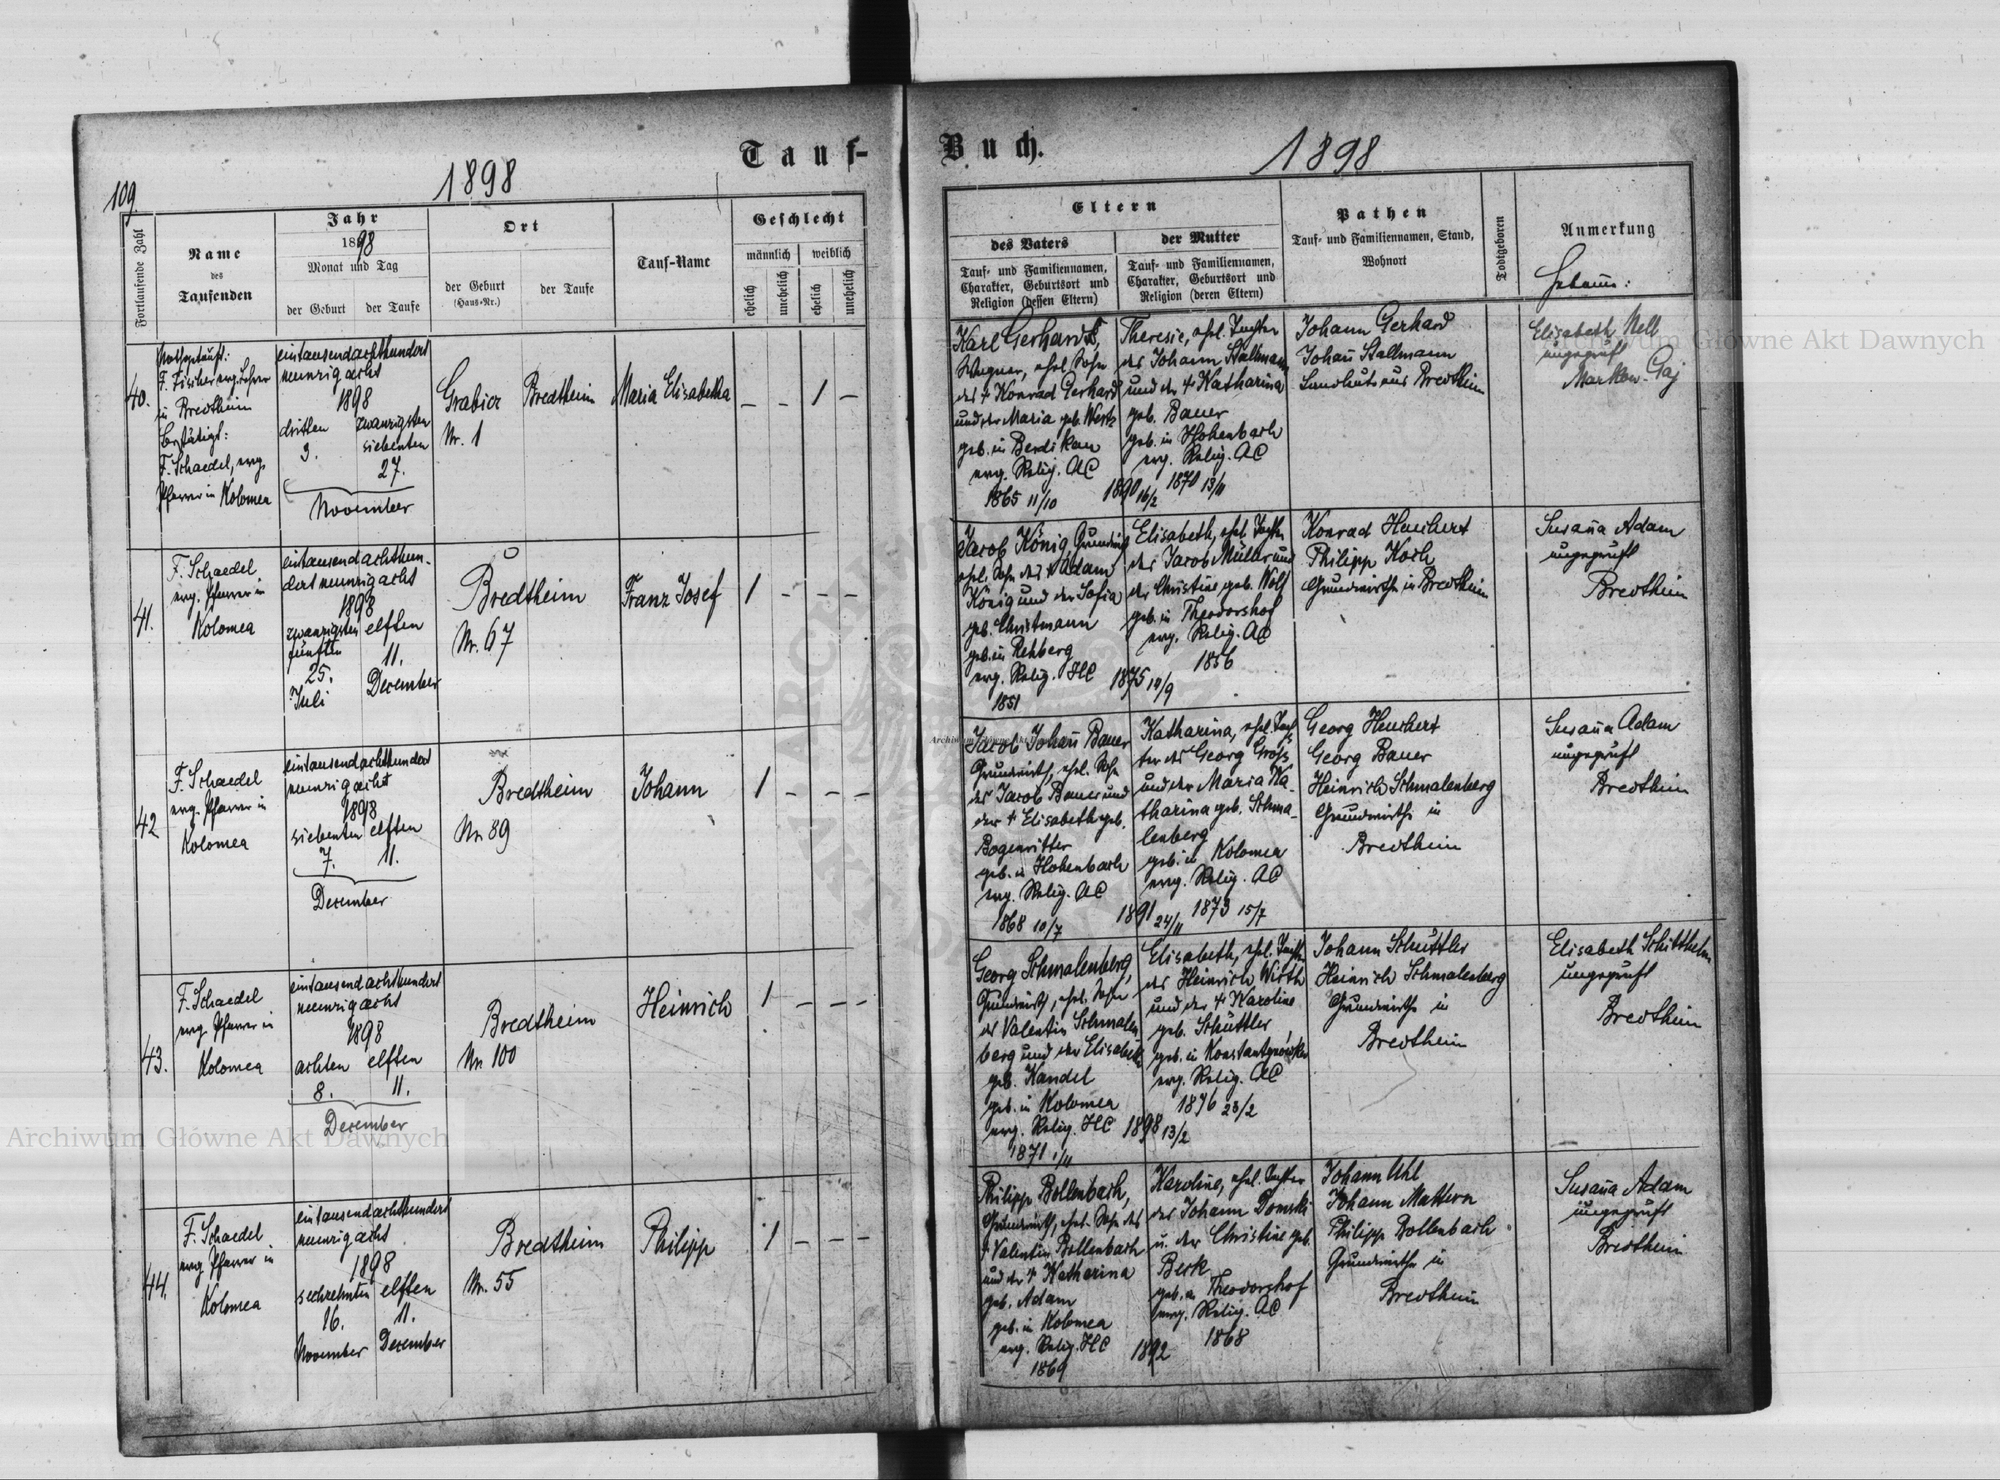 109.
1898
Tauf-
Fortlaufende Zahl
Name
des
Taufenden
Jahr
1898
Monat und Tag
der Geburt
der Taufe
Ort
der Geburt
(Haus-Nr.)
der Taufe
Tauf-Name
Geschlecht
männlich
weiblich
ehelich
unehelich
ehelich
unehelich
40.
Nothgetauft:
F. Fischer evg. Lehrer
in Bredtheim
Bestätigt:
F. Schaedel, evg.
Pfarrer in Kolomea
eintausendachthundert
neunzigacht
1898
dritten
3.
zwanzigsten
siebenten
27.
November
Grabicz
Nr. 1
Bredtheim
Maria Elisabetha
– – 1 –
41.
F. Schaedel
evg. Pfarrer in
Kolomea
eintausendachthun-
dertneunzigacht
1898
zwanzigsten
fünften
25.
Juli
elften
11.
December
Bredtheim
Nr. 67
Franz Josef
1 – – –
42
F. Schaedel
evg. Pfarrer in
Kolomea
eintausendachthundert
neunzigacht
1898
siebenten elften
7. 11.
December
Bredtheim
Nr. 89
Johann
1 – – –
43.
F. Schaedel
evg. Pfarrer in
Kolomea
eintausendachthundert
neunzigacht
1898
achten elften
8. 11.
December
Bredtheim
Nr. 100
Heinrich
1 – – –
44.
F. Schaedel
evg. Pfarrer in
Kolomea
eintausendachthundert
neunzigacht
1898
sechzehnten elften
16. 11.
November December
Bredtheim
Nr. 55
Philipp
1 – – –
Buch.
1898
Eltern
des Vaters
Tauf- und Familiennamen,
Charakter, Geburtsort und
Religion (dessen Eltern)
der Mutter
Tauf- und Familiennamen,
Charakter, Geburtsort und
Religion (deren Eltern)
Pathen
Tauf- und Familiennamen, Stand,
Wohnort
Todtgeboren
Anmerkung
Hebamme:
Karl Gerhardt,
Wagner, ehel. Sohn
des † Konrad Gerhard
und der Maria geb.
geb. in
evg. Relig. AC
1865 11/10
1890 16/2
Theresie, ehel. Tochter
des Johann Stallmann
und der † Katharina
geb. Bauer
geb. in Hohenbach
evg. Relig. AC
1870 13/11
Johann Gerhard
Johann Stallmann
Landleute aus Bredtheim
Elisabeth Nell
ungeprüft
Markow. Gaj
Jacob König, Grundwirth
ehel. Sohn des † Adam
König und der Sofia
geb. Christmann
geb. in Rehberg
evg. Relig. HC
1851
1875 14/9
Elisabeth, ehel. Tochter
des Jacob Müller und
der Christine geb. Wolf
geb. in Theodorshof
evg. Relig. AC
1856
Konrad Heuchert
Philipp Koch
Grundwirthe in Bredtheim
Susana Adam
ungeprüft
Bredtheim
Jacob Johann Bauer
Grundwirth, ehel. Sohn
des Jacob Bauer und
der † Elisabeth geb.
Bogenritter
geb. in Hohenbach
evg. Relig. AC
1868 10/7
1891 24/11
Katharina, ehel. Toch-
ter des Georg Gross
und der Maria Ka-
tharina geb. Schma-
lenberg
geb. in Kolomea
evg. Relig. AC
1873 15/7
Georg Heuchert
Georg Bauer
Heinrich Schmalenberg
Grundwirthe in
Bredtheim
Susana Adam
ungeprüft
Bredtheim
Georg Schmalenberg,
Grundwirth, ehel. Sohn
des Valentin Schmalen
berg und der Elisabeth
geb. Kandel
geb. in Kolomea
evg. Relig. HC
1871 1/11
1898 13/2
Elisabeth, ehel. Tochter
des Heinrich Wirth
und der † Karoline
geb. Schüttler
geb. in Konstantynówka
evg. Relig. AC
1876 23/2
Johann Schüttler
Heinrich Schmalenberg
Grundwirthe in
Bredtheim
Elisabeth Schitthelm
ungeprüft
Bredtheim
Philipp Bollenbach,
Grundwirth, ehel. Sohn des
† Valentin Bollenbach
und der † Katharina
geb. Adam
geb. in Kolomea
evg. Relig. HC
1869
1892
Karoline, ehel. Tochter
des Johann Domski
u. der Christine geb.
Berk
geb. in Theodorshof
evg. Relig. AC
1868
Johann Uhl
Johann Mattern
Philipp Bollenbach
Grundwirthe in
Bredtheim
Susana Adam
ungeprüft
Bredtheim
Archiwum Główne Akt Dawnych
Archiwum Główne Akt Dawnych